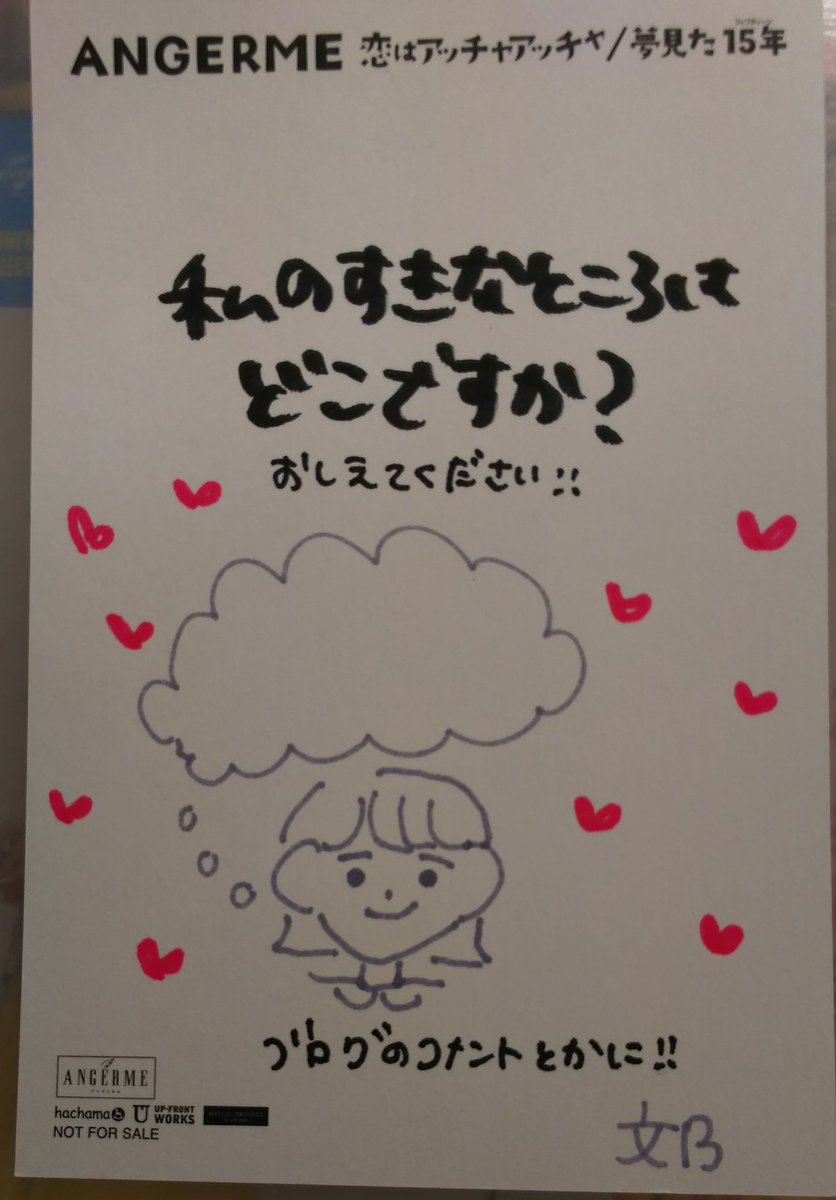 ANGERME 恋はアッチャアッチャ/夢見た15年
フィフティーン
私のすきなところは
どこですか?
おしえてください!!
ブログのコメントとかに!!
ANGERME
hachama UP-FRONT WORKS HELLO! PROJECT
NOT FOR SALE